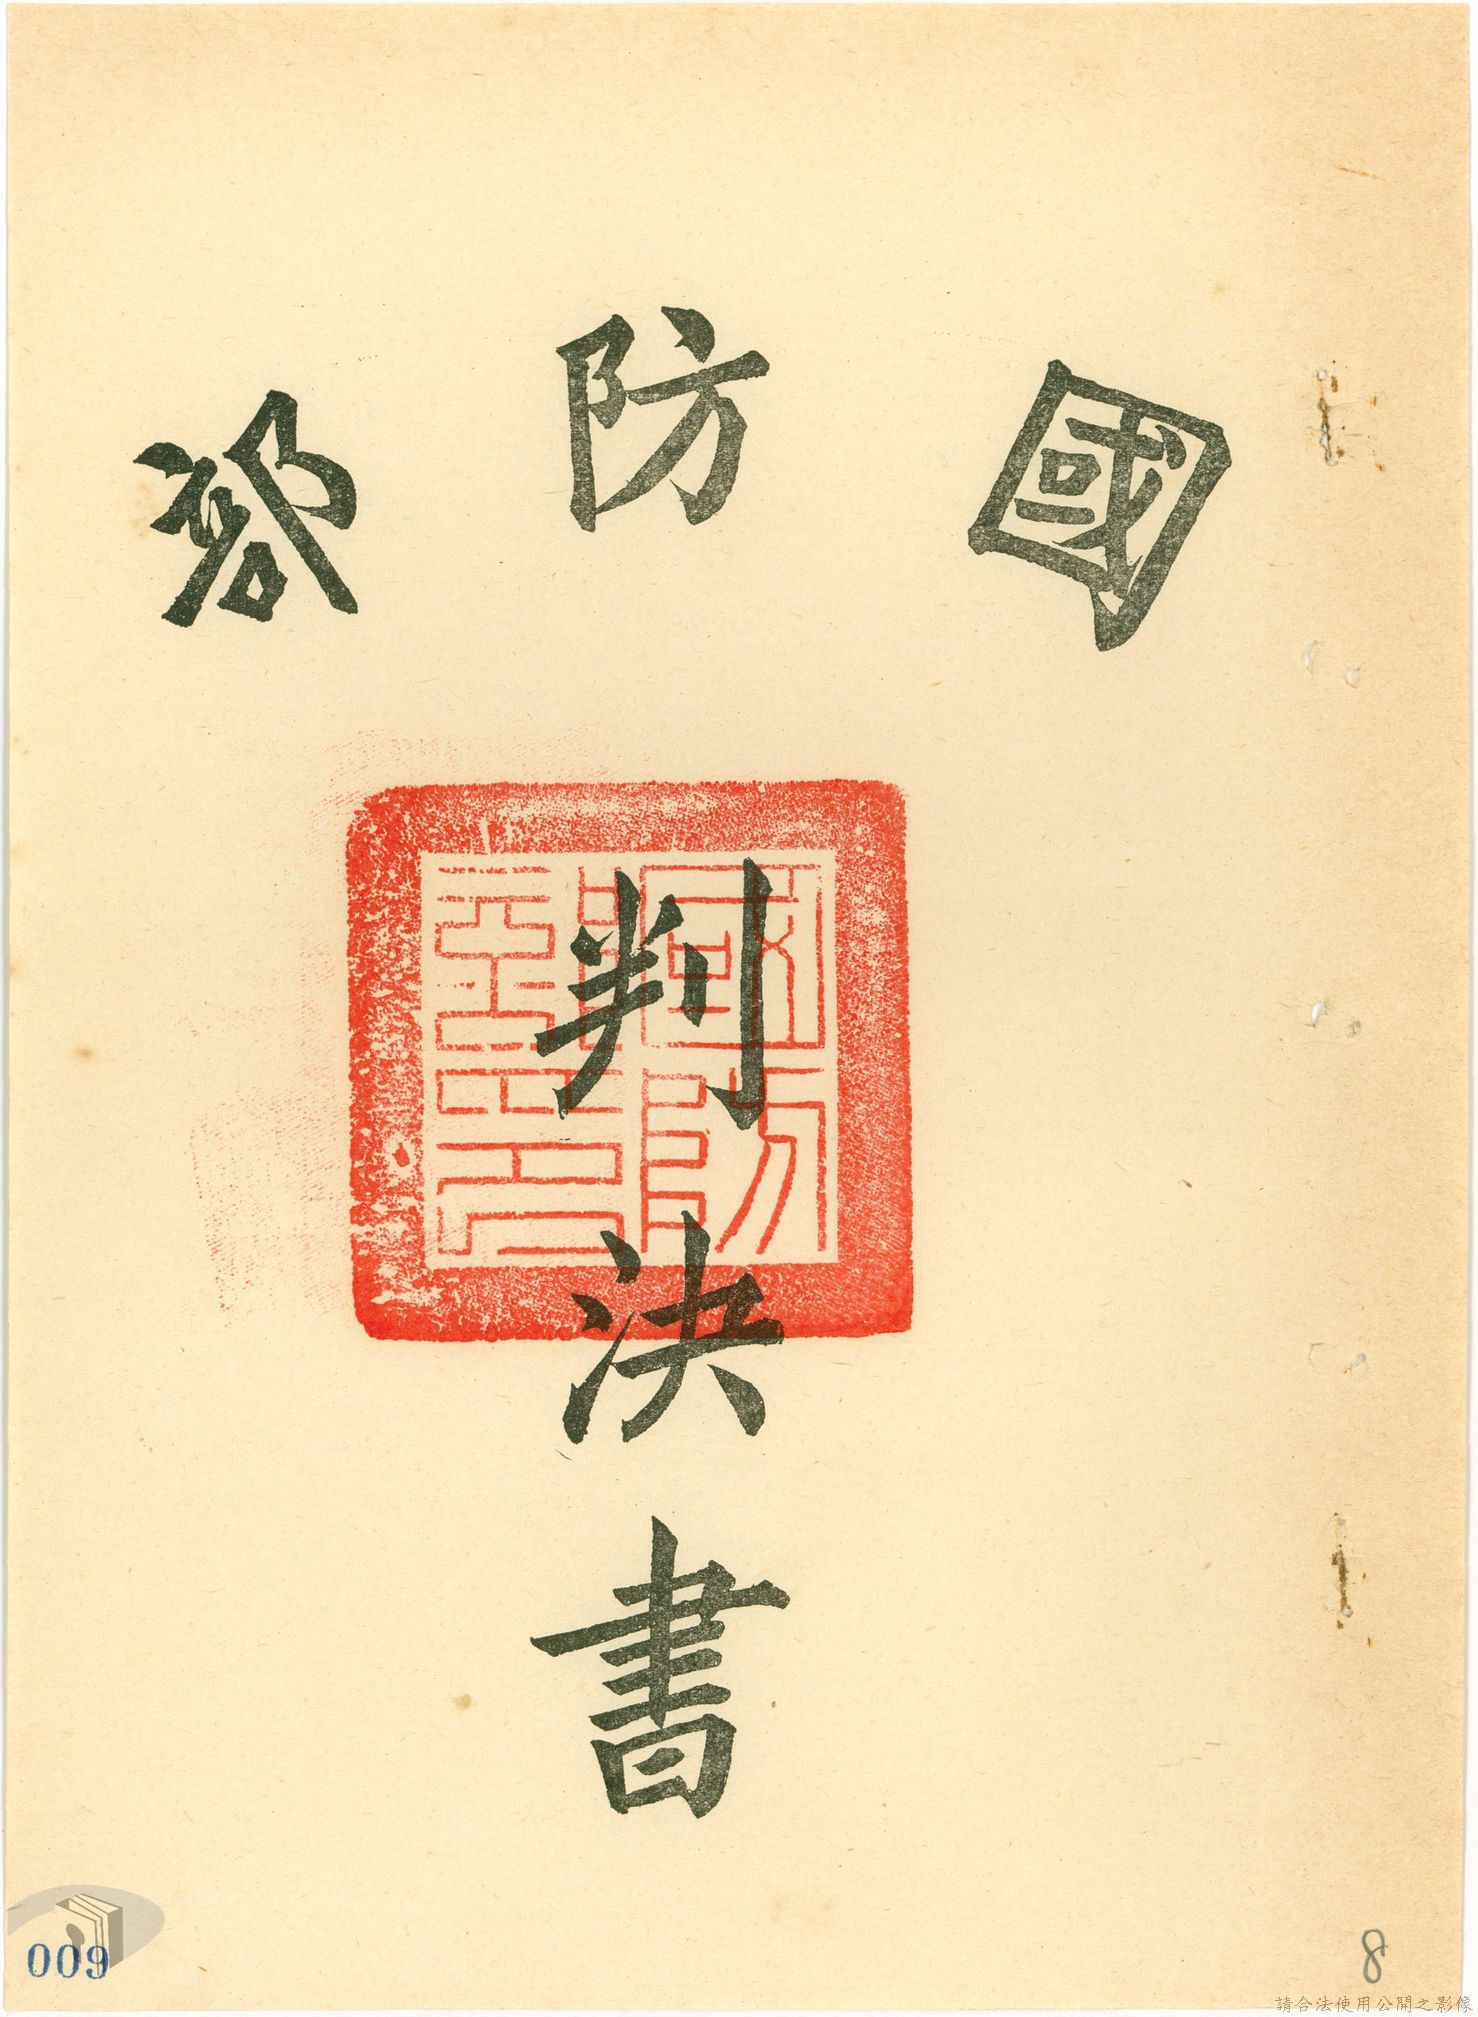 國防部
判決書
009
8
請合法使用公開之影像